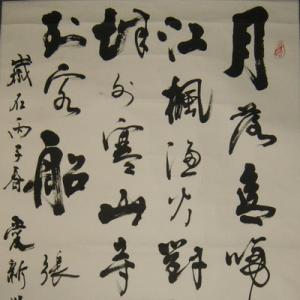 月落烏啼
江楓漁火對
城外寒山寺
到客船 張
歲在丙子春 愛新